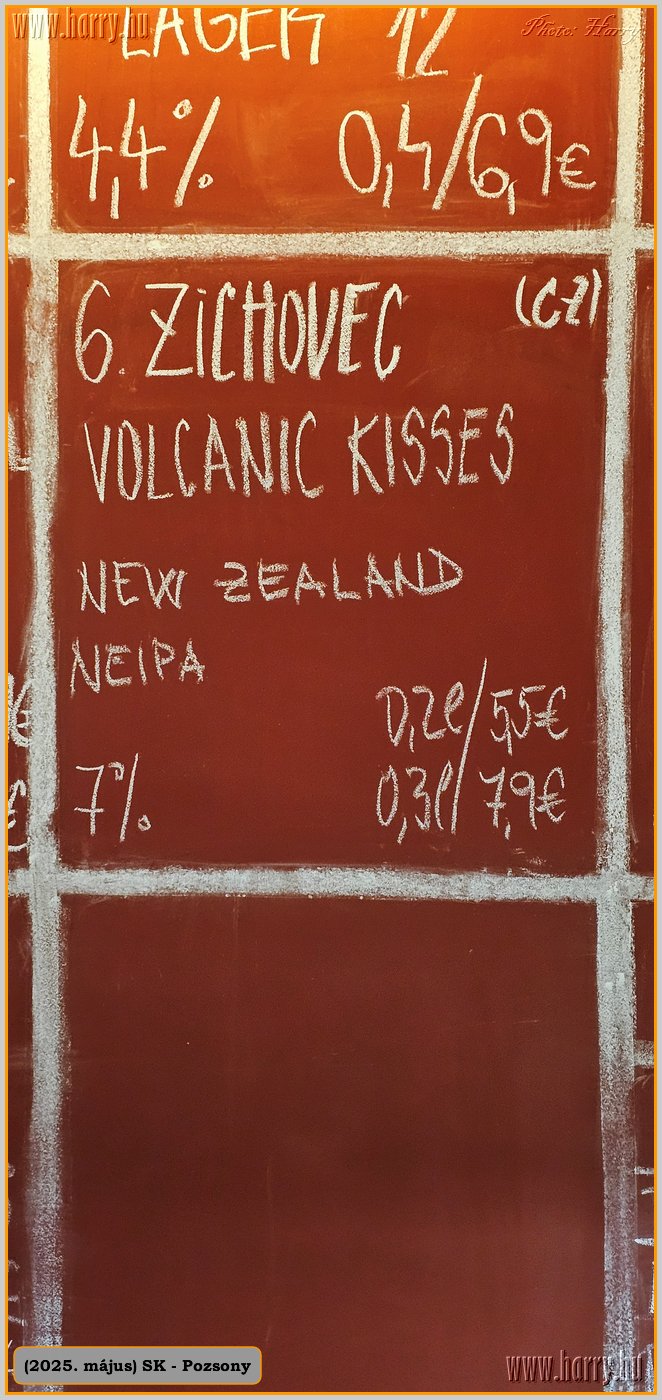 www.harry.hu
Photo: Harry
LAGER 12
4,4% 0,4/6,9€
6. ZiCHOVEC (CZ)
VOLCANIC KISSES
NEW ZEALAND
NEIPA
0,2l/5,5€
7% 0,3l/7,9€
€
€
(2025. május) SK - Pozsony
www.harry.hu